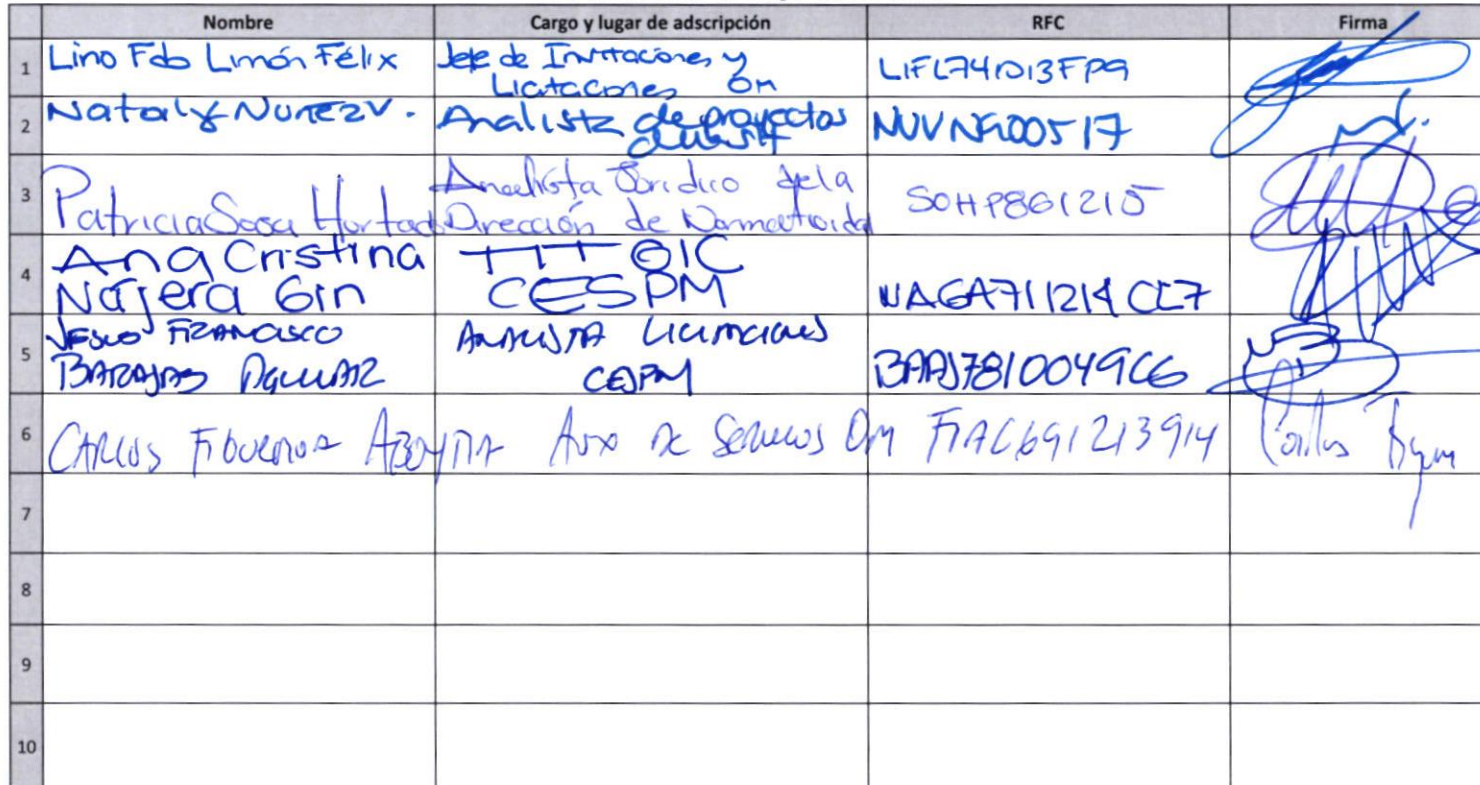 Nombre Cargo y lugar de adscripción RFC Firma
1 Lino Fdo Limón Félix Jefe de Invitaciones y Licitaciones OM LIFL741013FP9
2 Nataly Nuñez V. Analista de proyectos NUVN900517
3 Patricia Sosa Hurtado Analista Jurídico de la Dirección de Normatividad SOHP861215
4 Ana Cristina Nájera Gin TIT OIC CESPM NAGA711214CC7
5 Jesus Francisco Barajas Aguilar Analista Licitaciones CESPM BAAJ7810049C6
6 Carlos Figueroa Aux de Servicios OM FIAC691213914 Carlos
7
8
9
10